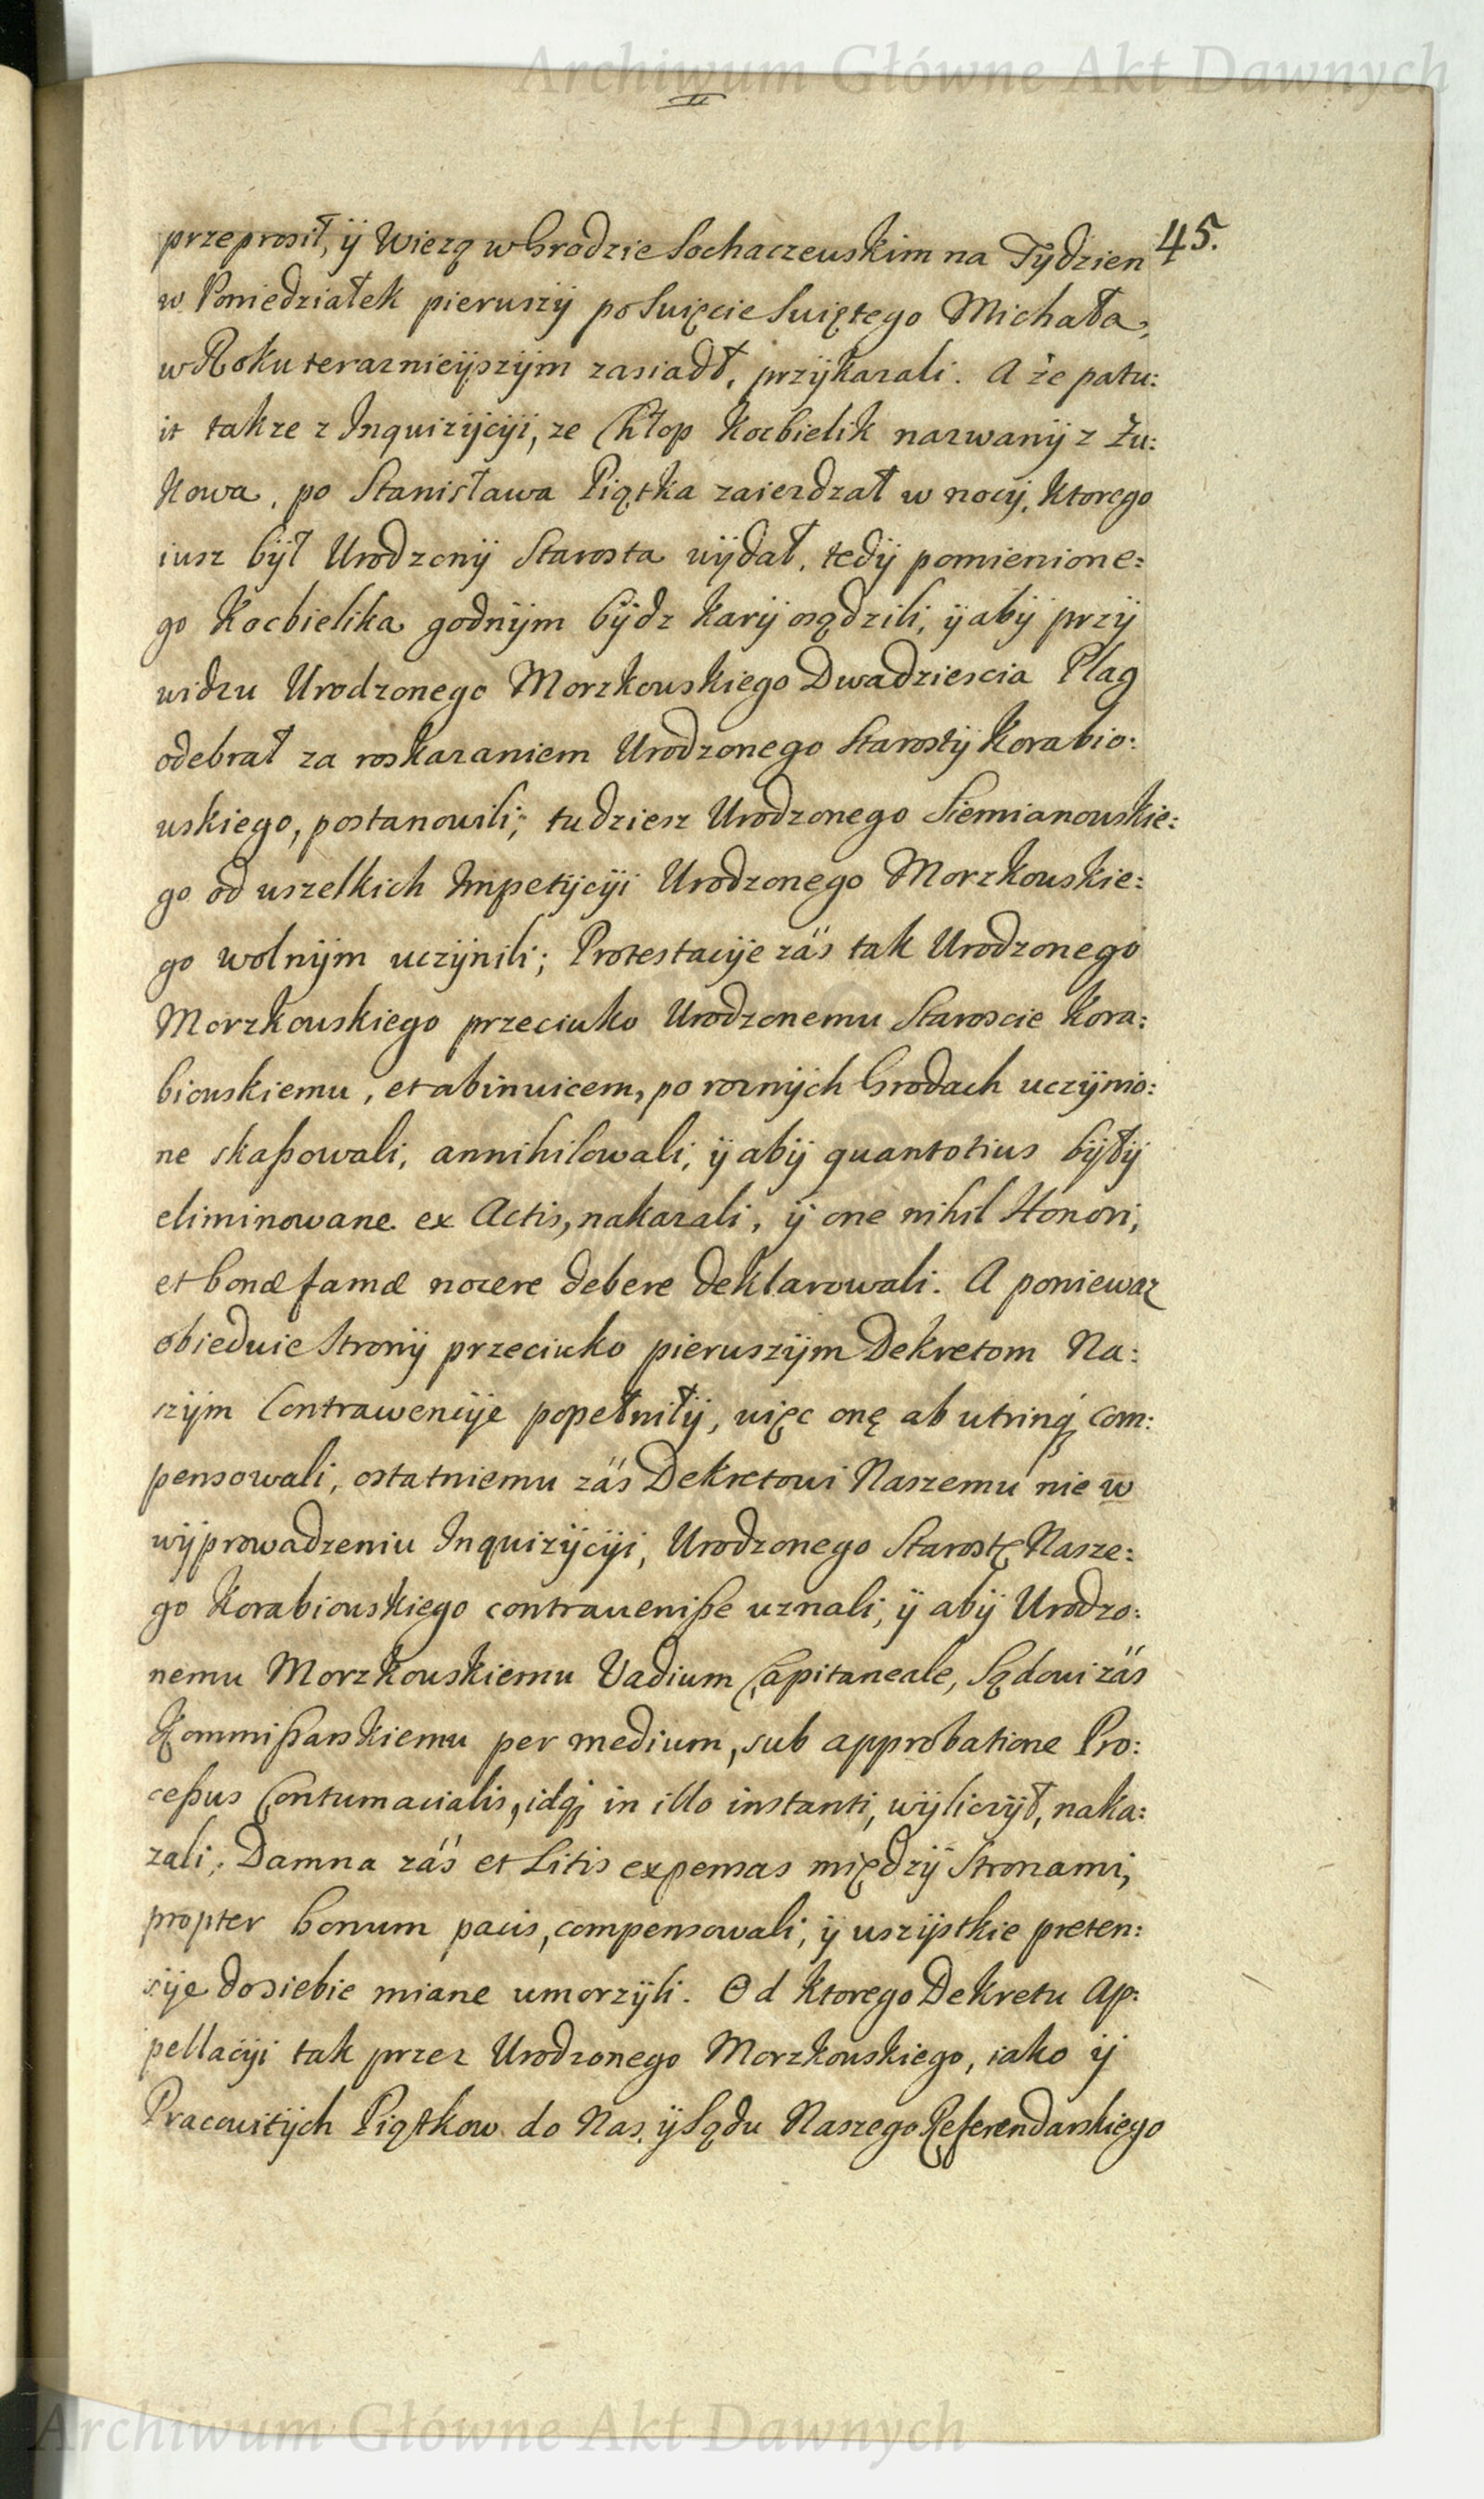 Archiwum Główne Akt Dawnych
II
45.
przeprosił, ÿ Wiezą w Grodzie Sochaczeuskim na Tydzien
w Poniedziałek pieruszÿ po Suięcie Suiętego Michała,
w Roku terazniejÿszÿm zasiadł, przÿkazali. A że patu:
it takze z InquizÿcÿI, ze Chłop Kocbielik nazwanÿ z Żu:
kowa, po Stanisława Piątka zaiezdzał w nocÿ, ktorego
iusz bÿł Urodzonÿ Starosta uÿdał, tedÿ pomienione:
go Kocbielika godnÿm bÿdz karÿ osądzili, ÿ abÿ przÿ
uidzu Urodzonego Morzkouskiego Dwadziescia Plag
odebrał za roskazaniem Urodzonego Starostÿ Korabio:
uskiego, postanouili; tudziesz Urodzonego Siemianouskie:
go od uszelkich Impetÿcÿi Urodzonego Morzkouskie:
go wolnÿm uczÿnili; Protestacÿe zás tak Urodzonego
Morzkouskiego przeciuko Urodzonemu Staroscie Kora:
biouskiemu, et abinuicem, po roznÿch Grodach uczÿnio:
ne skaßowali, annihilowali, ÿ abÿ quantotius bÿłÿ
eliminowane ex Actis, nakazali, ÿ one nihil Honori,
et bonæ famæ nocere debere deklarowali. A poniewaz
obieduie Stronÿ przeciuko pieruszÿm Dekretom Na:
szÿm Contrawencÿe popełniłÿ, uięc onę ab utrinq́ com:
pensowali, ostatniemu zás Dekretoui Naszemu nie w
wÿprowadzeniu Inquizÿcÿi, Urodzonego Starostę Nasze:
go Korabiouskiego contraueniße uznali, ÿ abÿ Urodzo:
nemu Morzkouskiemu Vadium Capitaneale, Sądoui zás
Kommißarskiemu per medium, sub approbatione Pro:
ceßus Contumacialis, idq́ in illo instanti, wÿliczÿł, naka:
zali; Damna zás et Litis expensas międzÿ Stronami,
propter bonum pacis, compensowali, ÿ uszÿstkie preten:
sÿe do siebie miane umorzÿli. Od ktorego Dekretu Ap:
pellacÿi tak przez Urodzonego Morzkouskiego, iako ÿ
Pracouitÿch Piątkow do Nas, ÿ Sądu Naszego Referendarskiego
Archiwum Główne Akt Dawnych